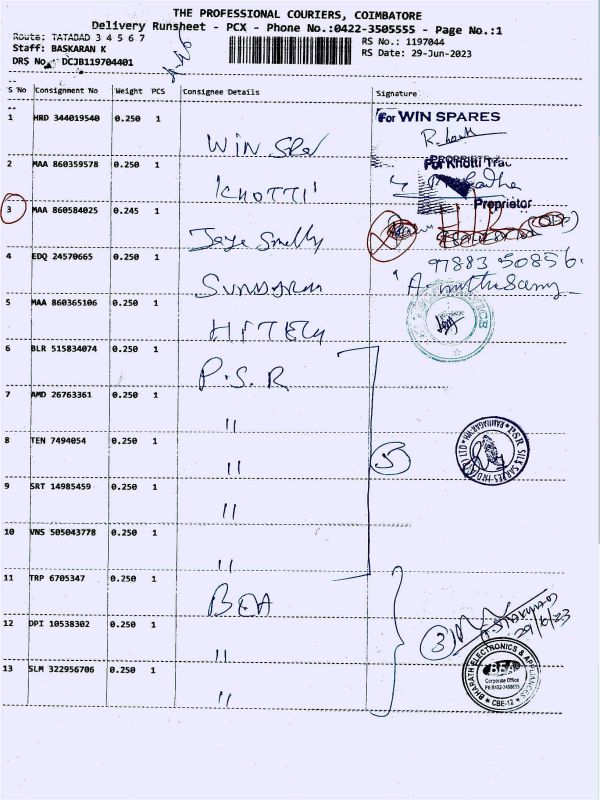 THE PROFESSIONAL COURIERS, COIMBATORE
Delivery Runsheet - PCX - Phone No.:0422-3505555 - Page No.:1
Route: TATABAD 3 4 5 6 7 RS No.: 1197044
Staff: BASKARAN K RS Date: 29-Jun-2023
DRS No. DCJB119704401
S No Consignment No Weight PCS Consignee Details Signature
1 HRD 344019540 0.250 1 For WIN SPARES
WIN
2 MAA 860359578 0.250 1 For Khotti
'KHOTTI'
Proprietor
3 MAA 860584025 0.245 1
4 EDQ 24570665 0.250 1 97883 50856.
5 MAA 860365106 0.250 1
HITECH
6 BLR 515834074 0.250 1
P.S.R
7 AMD 26763361 0.250 1
"
8 TEN 7494054 0.250 1 5
"
PSR SILK SAREES INDIA (P) LTD
9 SRT 14985459 0.250 1
"
10 VNS 505043778 0.250 1
"
11 TRP 6705347 0.250 1
BEA
12 DPI 10538302 0.250 1 3 29/6/23
"
13 SLM 322956706 0.250 1
"
BHARATH ELECTRONICS & APPLIANCES
BEA
Corporate Office
CBE-12